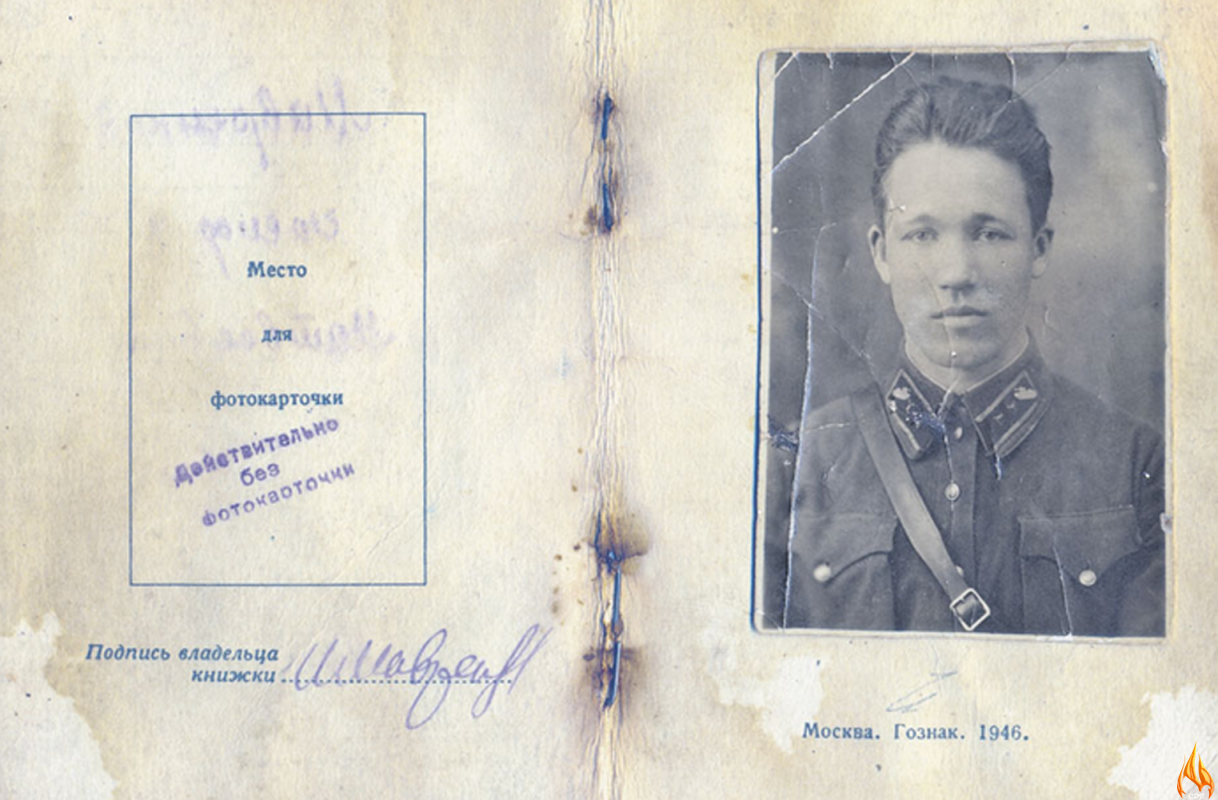 Место
для
фотокарточки
Действительно
без
фотокарточки
Подпись владельца
книжки
Москва. Гознак. 1946.